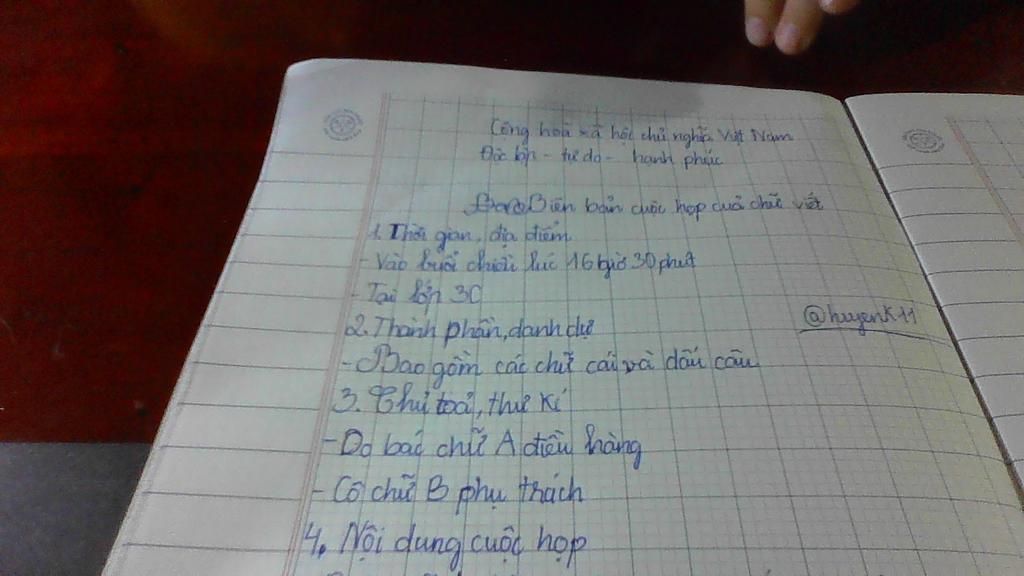 Cộng hoà xã hội chủ nghĩa Việt Nam
Độc lập - tự do - hạnh phúc
Biên bản cuộc họp của chữ viết
1. Thời gian, địa điểm
- Vào buổi chiều lúc 16 giờ 30 phút
- Tại lớp 3C
2. Thành phần, danh dự
@huyenK11
- Bao gồm các chữ cái và dấu câu
3. Chủ toả, thư kí
- Do bác chữ A điều hàng
- Cô chữ B phụ trách
4. Nội dung cuộc họp